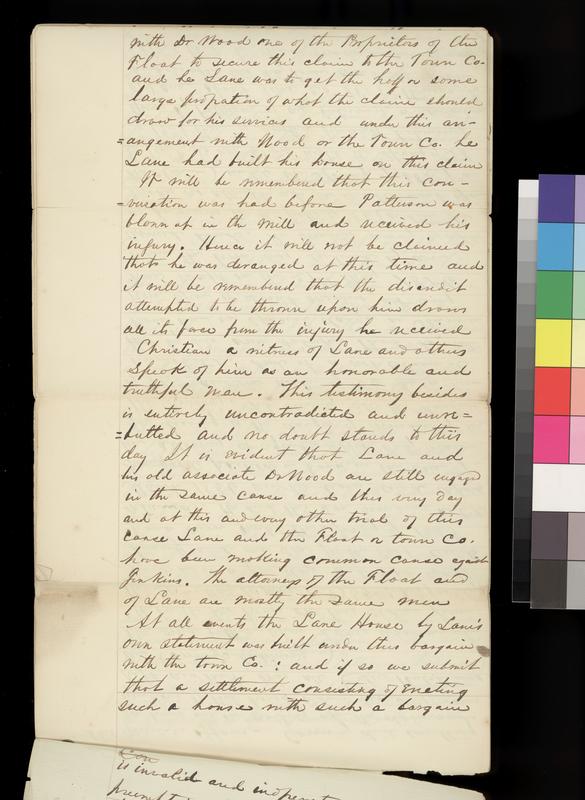 with Dr Wood one of the Proprietors of the
Float to secure this claim to the Town Co.
and he Lane was to get the half or some
large propation of what the claim should
draw for his services and under this arr-
=angement with Wood or the Town Co. he
Lane had built his house on this claim
It will be remembered that this con-
=versation was had before Patterson was
blown up in the Mill and received his
injury. Hence it will not be claimed
that he was deranged at this time and
it will be remembered that the discredit
attempted to be thrown upon him draws
all its force from the injury he received
Christian a witness of Lane and others
speak of him as an honorable and
truthful man. This testimony besides
is entirely uncontradicted and unre=
=butted and no doubt stands to this
day It is evident that Lane and
his old associate Dr Wood are still engaged
in the same cause and this very day
and at this and every other trial of this
cause Lane and the Float or town Co.
have been making common cause against
Jenkins. The attorneys of the Float and
of Lane are mostly the same men
At all events the Lane House by Lane's
own statement was built under this bargain
with the town Co.: and if so we submit
that a settlement consisting of erecting
such a house with such a bargain
is invalid and